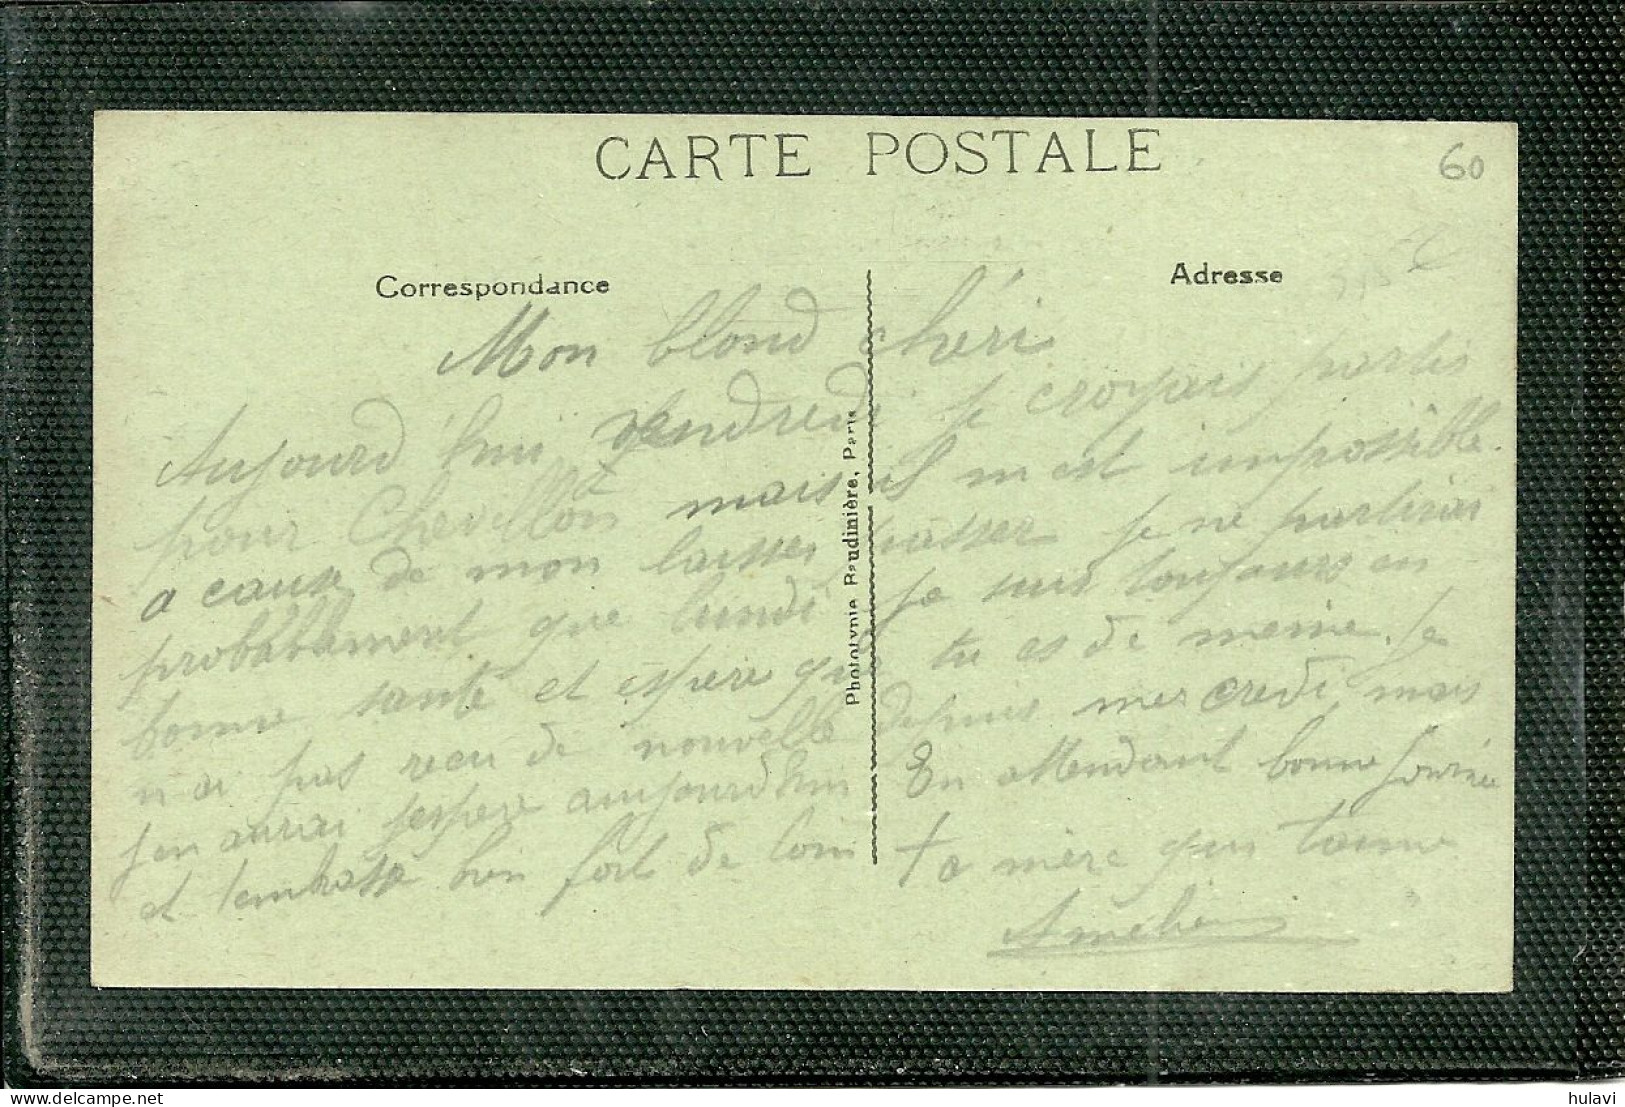 CARTE POSTALE
60
Correspondance
Adresse
Phototypie Baudinière, Paris
Mon blond chéri
Aujourd'hui vendredi je croyais partir
pour Chevillon mais il m est impossible.
a cause de mon laisser passer je ne partirai
probablement que lundi, je suis toujours en
bonne santé et espère que tu es de meme. Je
n ai pas recu de nouvelle depuis mercredi mais
j en aurai j espere aujourd'hui En attendant bonne journée
et t embrasse bien fort de loin ta mère qui t aime
Amelie
hulavi
delcampe.net